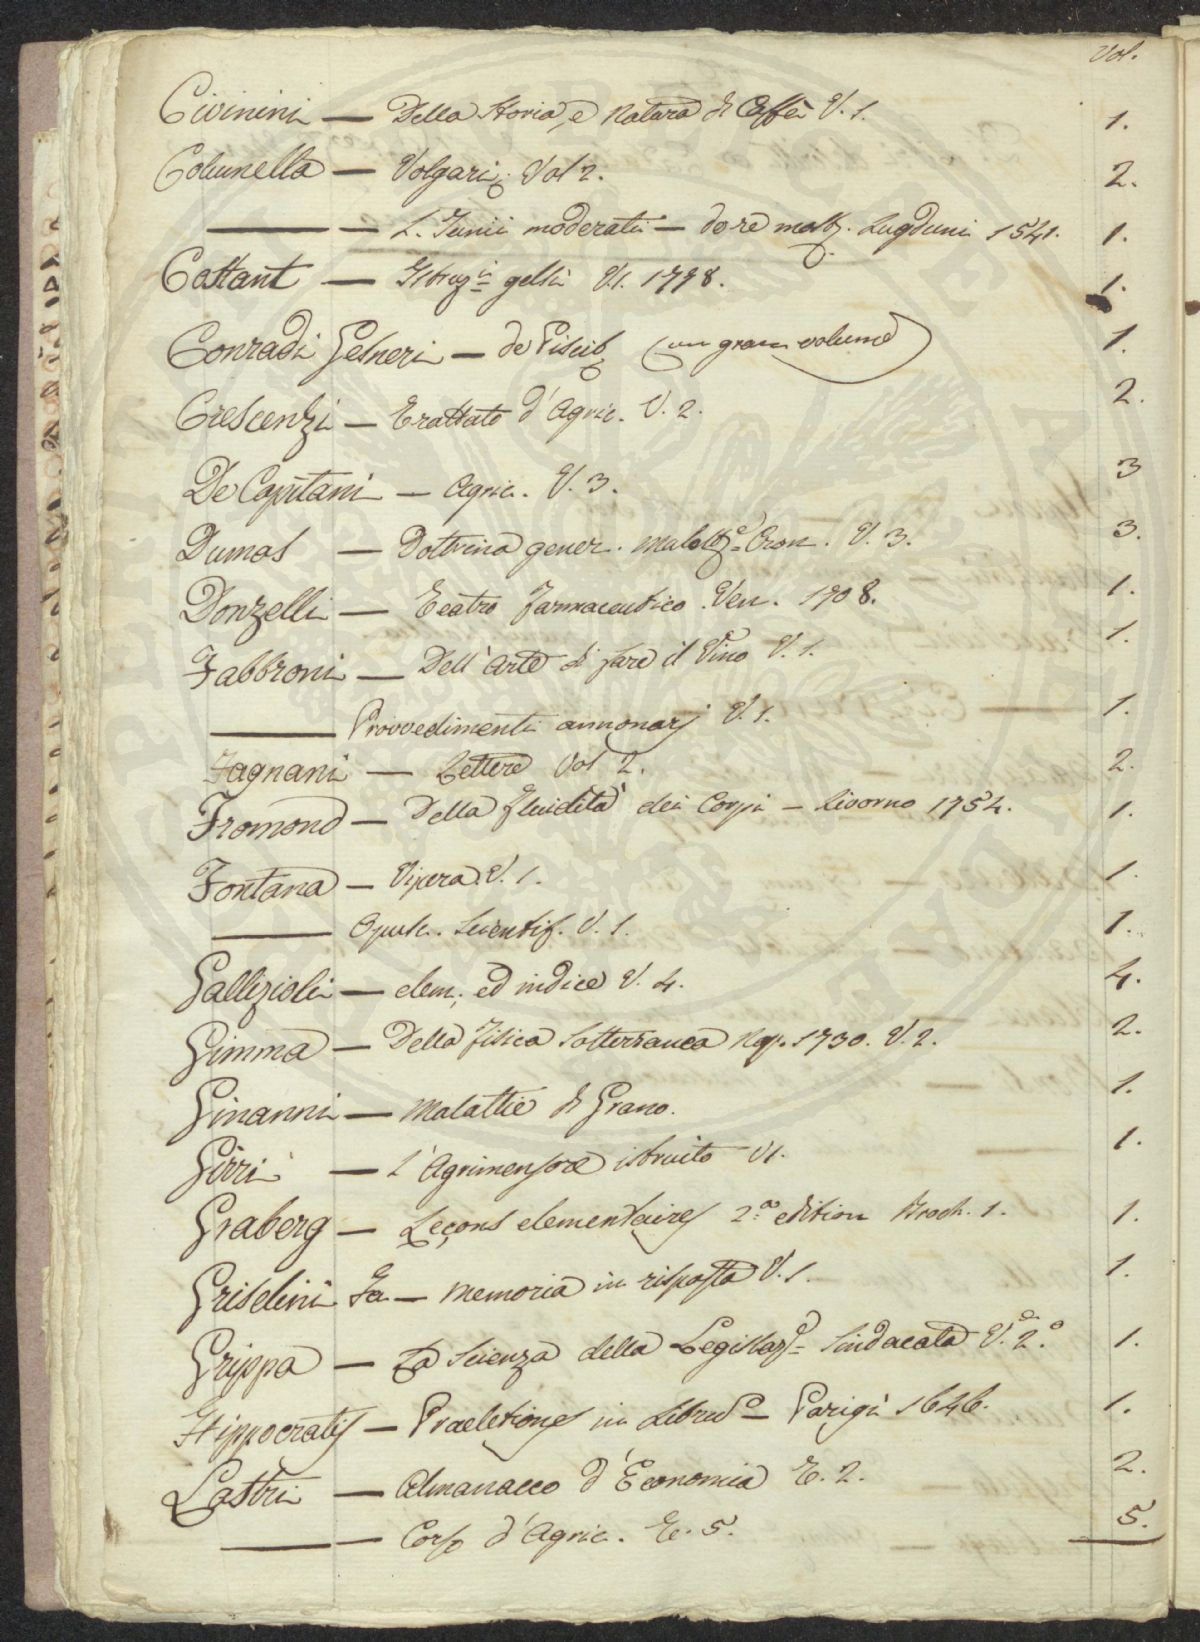 Vol.
Civinini — Della Storia, e Natura di Caffè V. 1. 1.
Columella — Volgariz. Vol 2. 2.
—— — L. Junii moderati — de re Lugduni 1541. 1.
Costant — Istruz.i gelsi V.1. 1798. 1.
Conradi Gesneri — de Piscib (un gran volume) 1.
Crescenzi — Trattato d'Agric. V. 2. 2.
De Capitani — Agric. V. 3. 3
Dumas — Dottrina gener. Cron. V. 3. 3.
Donzelli — Teatro Farmaceutico. Ven. 1708. 1.
Fabbroni — Dell'Arte di fare il Vino V. 1. 1.
—— Provvedimenti annonarj V. 1. 1.
Fagnani — Lettere Vol 2. 2.
Fromond — Della fluidità dei Corpi — Livorno 1754. 1.
Fontana — Vipera. V. 1. 1.
—— Opusc. Scientif. V. 1. 1.
Gallizioli — elem. ed indice V. 4. 4.
Gimma — Della Fisica Sotterranea Nap. 1730. V. 2. 2.
Ginanni — Malattie di Grano. 1.
Girri — L'Agrimensore istruito V1. 1.
Graberg — Leçons elementaires 2.a edition Broch. 1. 1.
Griselini Fr. — Memoria in risposta V. 1. 1.
Grippa — La Scienza della Legislaz.e Sindacata V. 2.o 1.
Hippocratis — Praeletiones in — Parigi 1646. 1.
Lastri — Almanacco d'Economia T. 2. 2.
—— — Corso d'Agric. T. 5. 5.